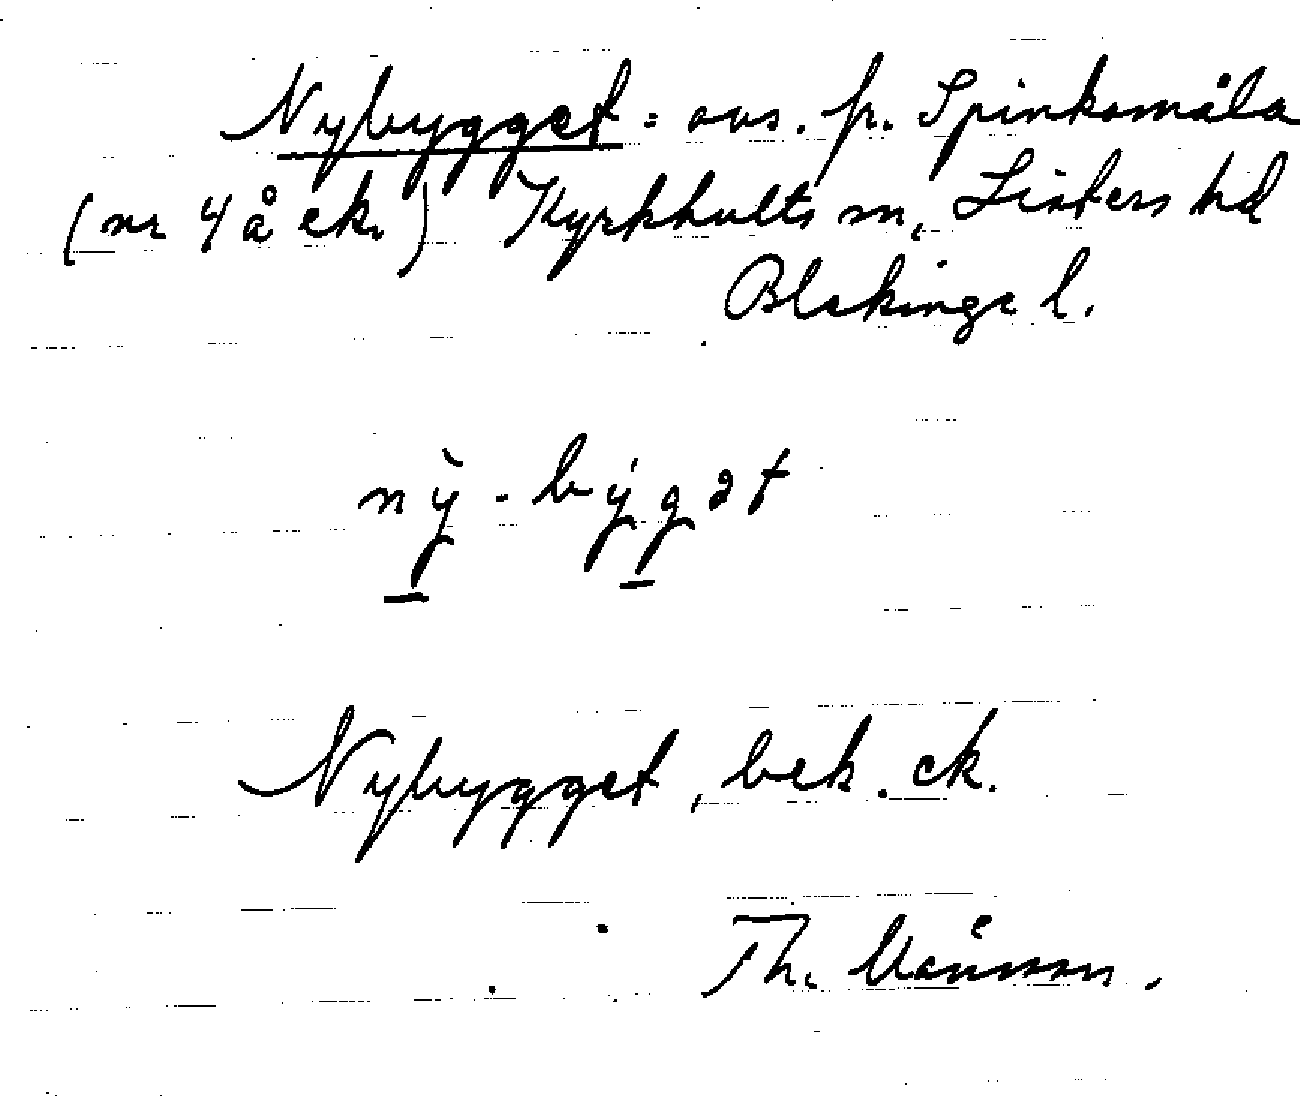 Nybygget = avs. fr. Spinkamåla
(nr 4 å ek.) Kyrkhults sn, Listers hd
Blekinge l.
nỳ - býgət
Nybygget, bek. ek.
Th.